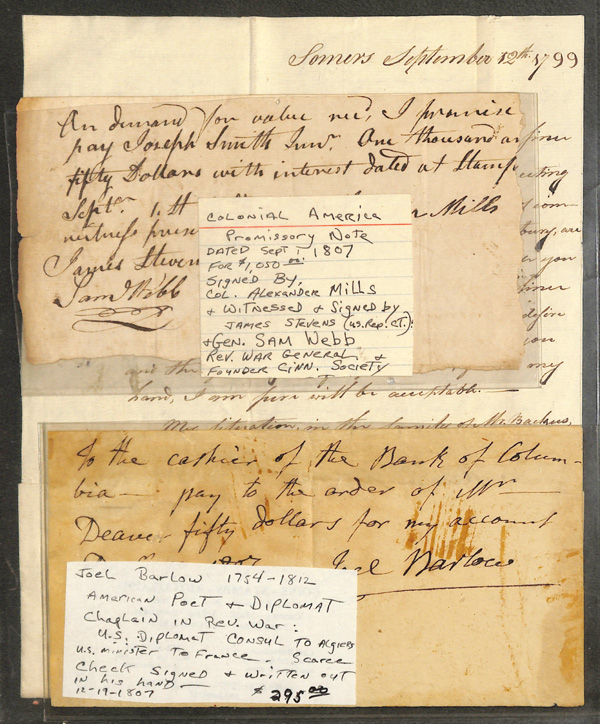 Somers September 12th 1799
On demand for value recd, I promise
pay Joseph Smith Junr. One thousand an
fifty Dollars with interest dated at Stamf
Septr 1. st
Mills
witness presen
James Steven
Saml Webb
COLONIAL AMERICA
Promissory Note
DATED SEPT 1, 1807
FOR $1,050.00:
SIGNED BY,
COL. ALEXANDER MILLS
& WITNESSED & SIGNED by
JAMES STEVENS (U.S. Rep. CT.):
& GEN. SAM WEBB
REV. WAR GENERAL &
FOUNDER CINN. SOCIETY
you
and the
my
hand, I am sure will be acceptable.
My situation, in the family of Mr. Backus,
To the cashier of the Bank of Colum-
bia — pay to the order of Mr
Deaver fifty dollars for my account
Joel Barlow
JOEL BARLOW 1754-1812
AMERICAN POET & DIPLOMAT
Chaplain IN REV. WAR:
U.S. DIPLOMAT CONSUL TO ALGIERS
U.S. MINISTER TO FRANCE. SCARCE
CHECK SIGNED & WRITTEN OUT
IN HIS HAND —
12-19-1807
$295.00